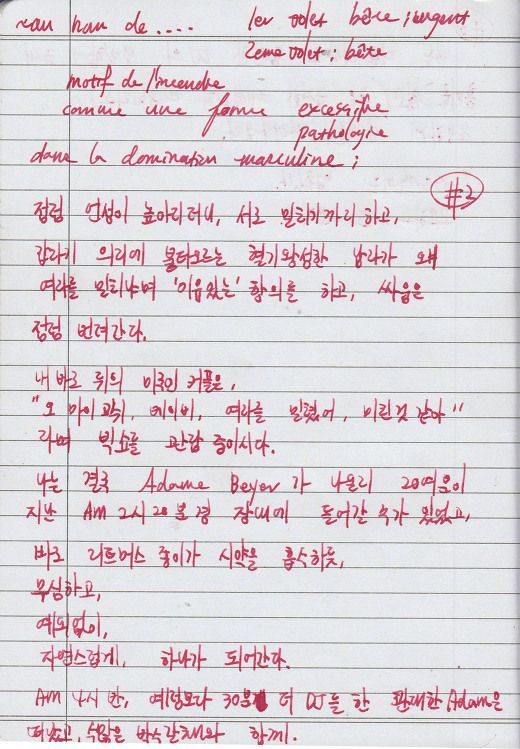 han de .... 1er volet bête ; urgent
2eme volet ; bête
motif de l'incendie
comme une forme excessive
pathologie
dans la domination masculine ;
#2
점점 언성이 높아리더니, 서로 밀티기까리 하고,
갑라기 의리에 불타오르는 혈기왕성한 남라가 왜
여라를 밀티냐며 '이유있는' 항의를 하고, 싸움은
점점 번려간다.
내 바로 뒤의 미국인 커플은,
"오 마이 곽쉬, 베이비, 여라를 밀쳤어, 미린것 같아"
라며 빅쇼를 관람 중이시다.
나는 결국 Adame Beyer가 나온리 20여분이
지난 AM 2시 20분경 장내에 들어갈 수가 있었고,
바로 리트머스 종이가 시약을 흡수하듯,
무심하고,
예외없이,
자연스럽게, 하나가 되어간다.
AM 4시 반, 예정보다 30분 더 DJ를 한 관대한 Adam은
떠났고, 수많은 박수갈채와 함께.